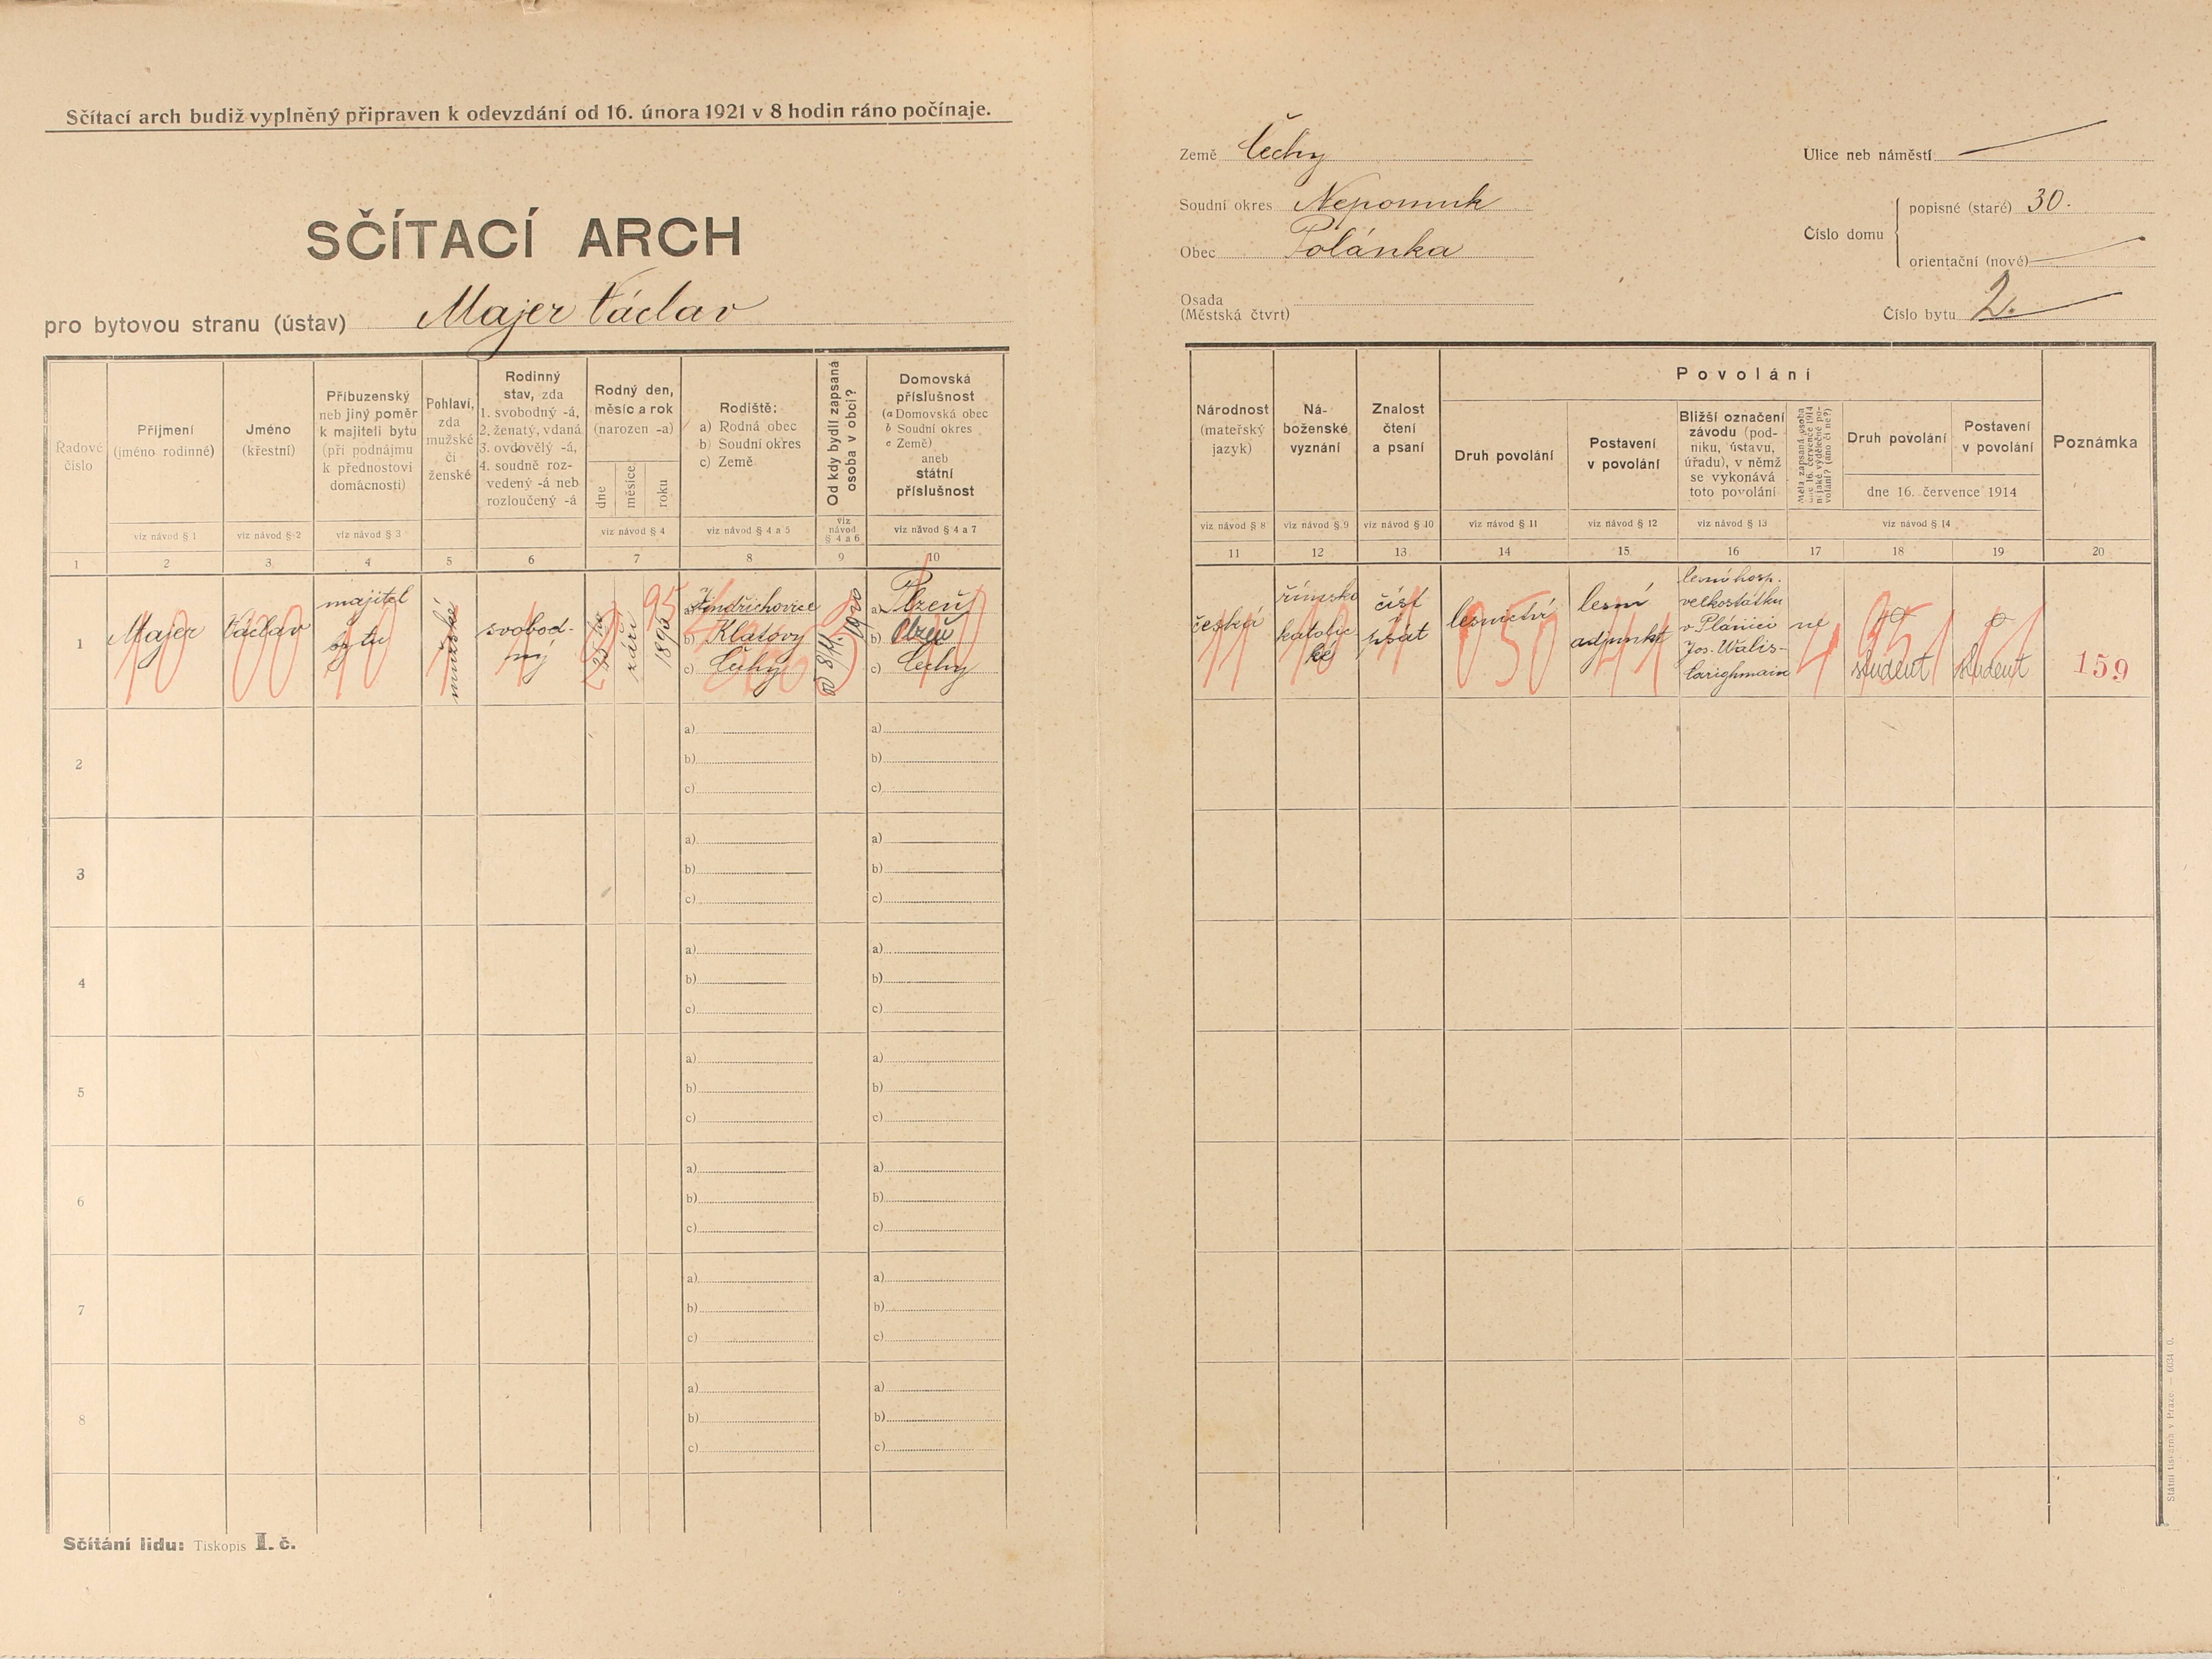 Sčítací arch budiž vyplněný připraven k odevzdání od 16. února 1921 v 8 hodin ráno počínaje.
SČÍTACÍ ARCH
pro bytovou stranu (ústav) Majer Václav
Země Čechy
Soudní okres Nepomuk
Obec Polánka
Osada
(Městská čtvrt)
Ulice neb náměstí
Číslo domu
popisné (staré) 30.
orientační (nové)
Číslo bytu 2.
Řadové
číslo
Příjmení
(jméno rodinné)
Jméno
(křestní)
Příbuzenský
neb jiný poměr
k majiteli bytu
(při podnájmu
k přednostovi
domácnosti)
Pohlaví,
zda
mužské
či
ženské
Rodinný
stav, zda
1. svobodný -á,
2. ženatý, vdaná
3. ovdovělý -á,
4. soudně roz-
vedený -á neb
rozloučený -á
Rodný den,
měsíc a rok
(narozen -a)
dne
měsíce
roku
Rodiště:
a) Rodná obec
b) Soudní okres
c) Země
Od kdy bydlí zapsaná
osoba v obci?
Domovská
příslušnost
(a Domovská obec
b Soudní okres
c Země)
aneb
státní
příslušnost
viz návod § 1
viz návod § 2
viz návod § 3
viz návod § 4
viz návod § 4 a 5
viz
návod
§ 4 a 6
viz návod § 4 a 7
1 2 3 4 5 6 7 8 9 10
Národnost
(mateřský
jazyk)
Ná-
boženské
vyznání
Znalost
čtení
a psaní
Povolání
Druh povolání
Postavení
v povolání
Bližší označení
závodu (pod-
niku, ústavu,
úřadu), v němž
se vykonává
toto povolání
Měla zapsaná osoba
dne 16. července 1914
nějaké výdělečné po-
volání? (ano či ne?)
Druh povolání
Postavení
v povolání
dne 16. července 1914
Poznámka
viz návod § 8
viz návod § 9
viz návod § 10
viz návod § 11
viz návod § 12
viz návod § 13
viz návod § 14
11 12 13 14 15 16 17 18 19 20
1
Majer
Václav
majitel
bytu
mužské
svobod-
ný
září
1895
95
a) Jindřichovice
b) Klatovy
c) Čechy
1920
a) Plzeň
b) Plzeň
c) Čechy
česká
římsko
katolic
ké
číst
psát
lesnictví
lesní
adjunkt
lesní hosp.
velkostatku
v Plánici
Jos. Walis-
Carighmain
ne
student
student
050
159
2
a)
b)
c)
a)
b)
c)
3
a)
b)
c)
a)
b)
c)
4
a)
b)
c)
a)
b)
c)
5
a)
b)
c)
a)
b)
c)
6
a)
b)
c)
a)
b)
c)
7
a)
b)
c)
a)
b)
c)
8
a)
b)
c)
a)
b)
c)
Sčítání lidu: Tiskopis I. č.
Státní tiskárna v Praze. — 6634-0.